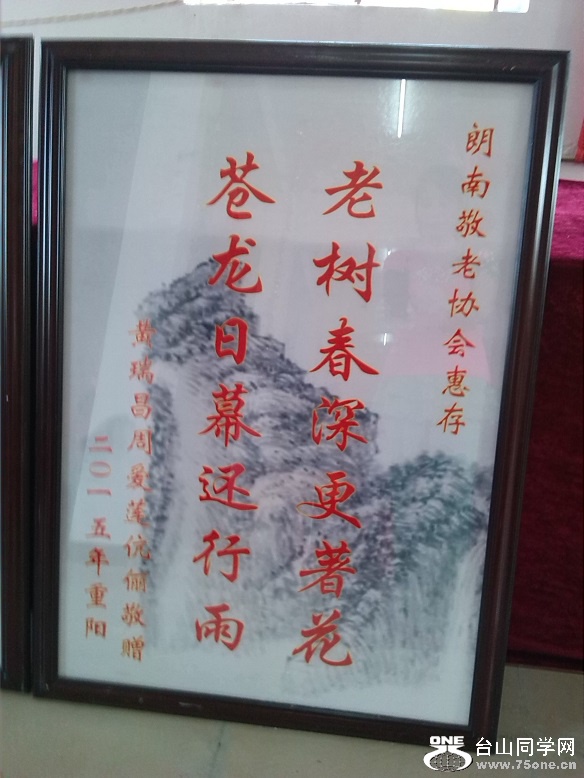 朗南敬老协会惠存
老树春深更著花
苍龙日幕还行雨
黄瑞昌周爱莲伉俪敬赠
二〇一五年重阳
ONE 台山同学网
www.75one.cn